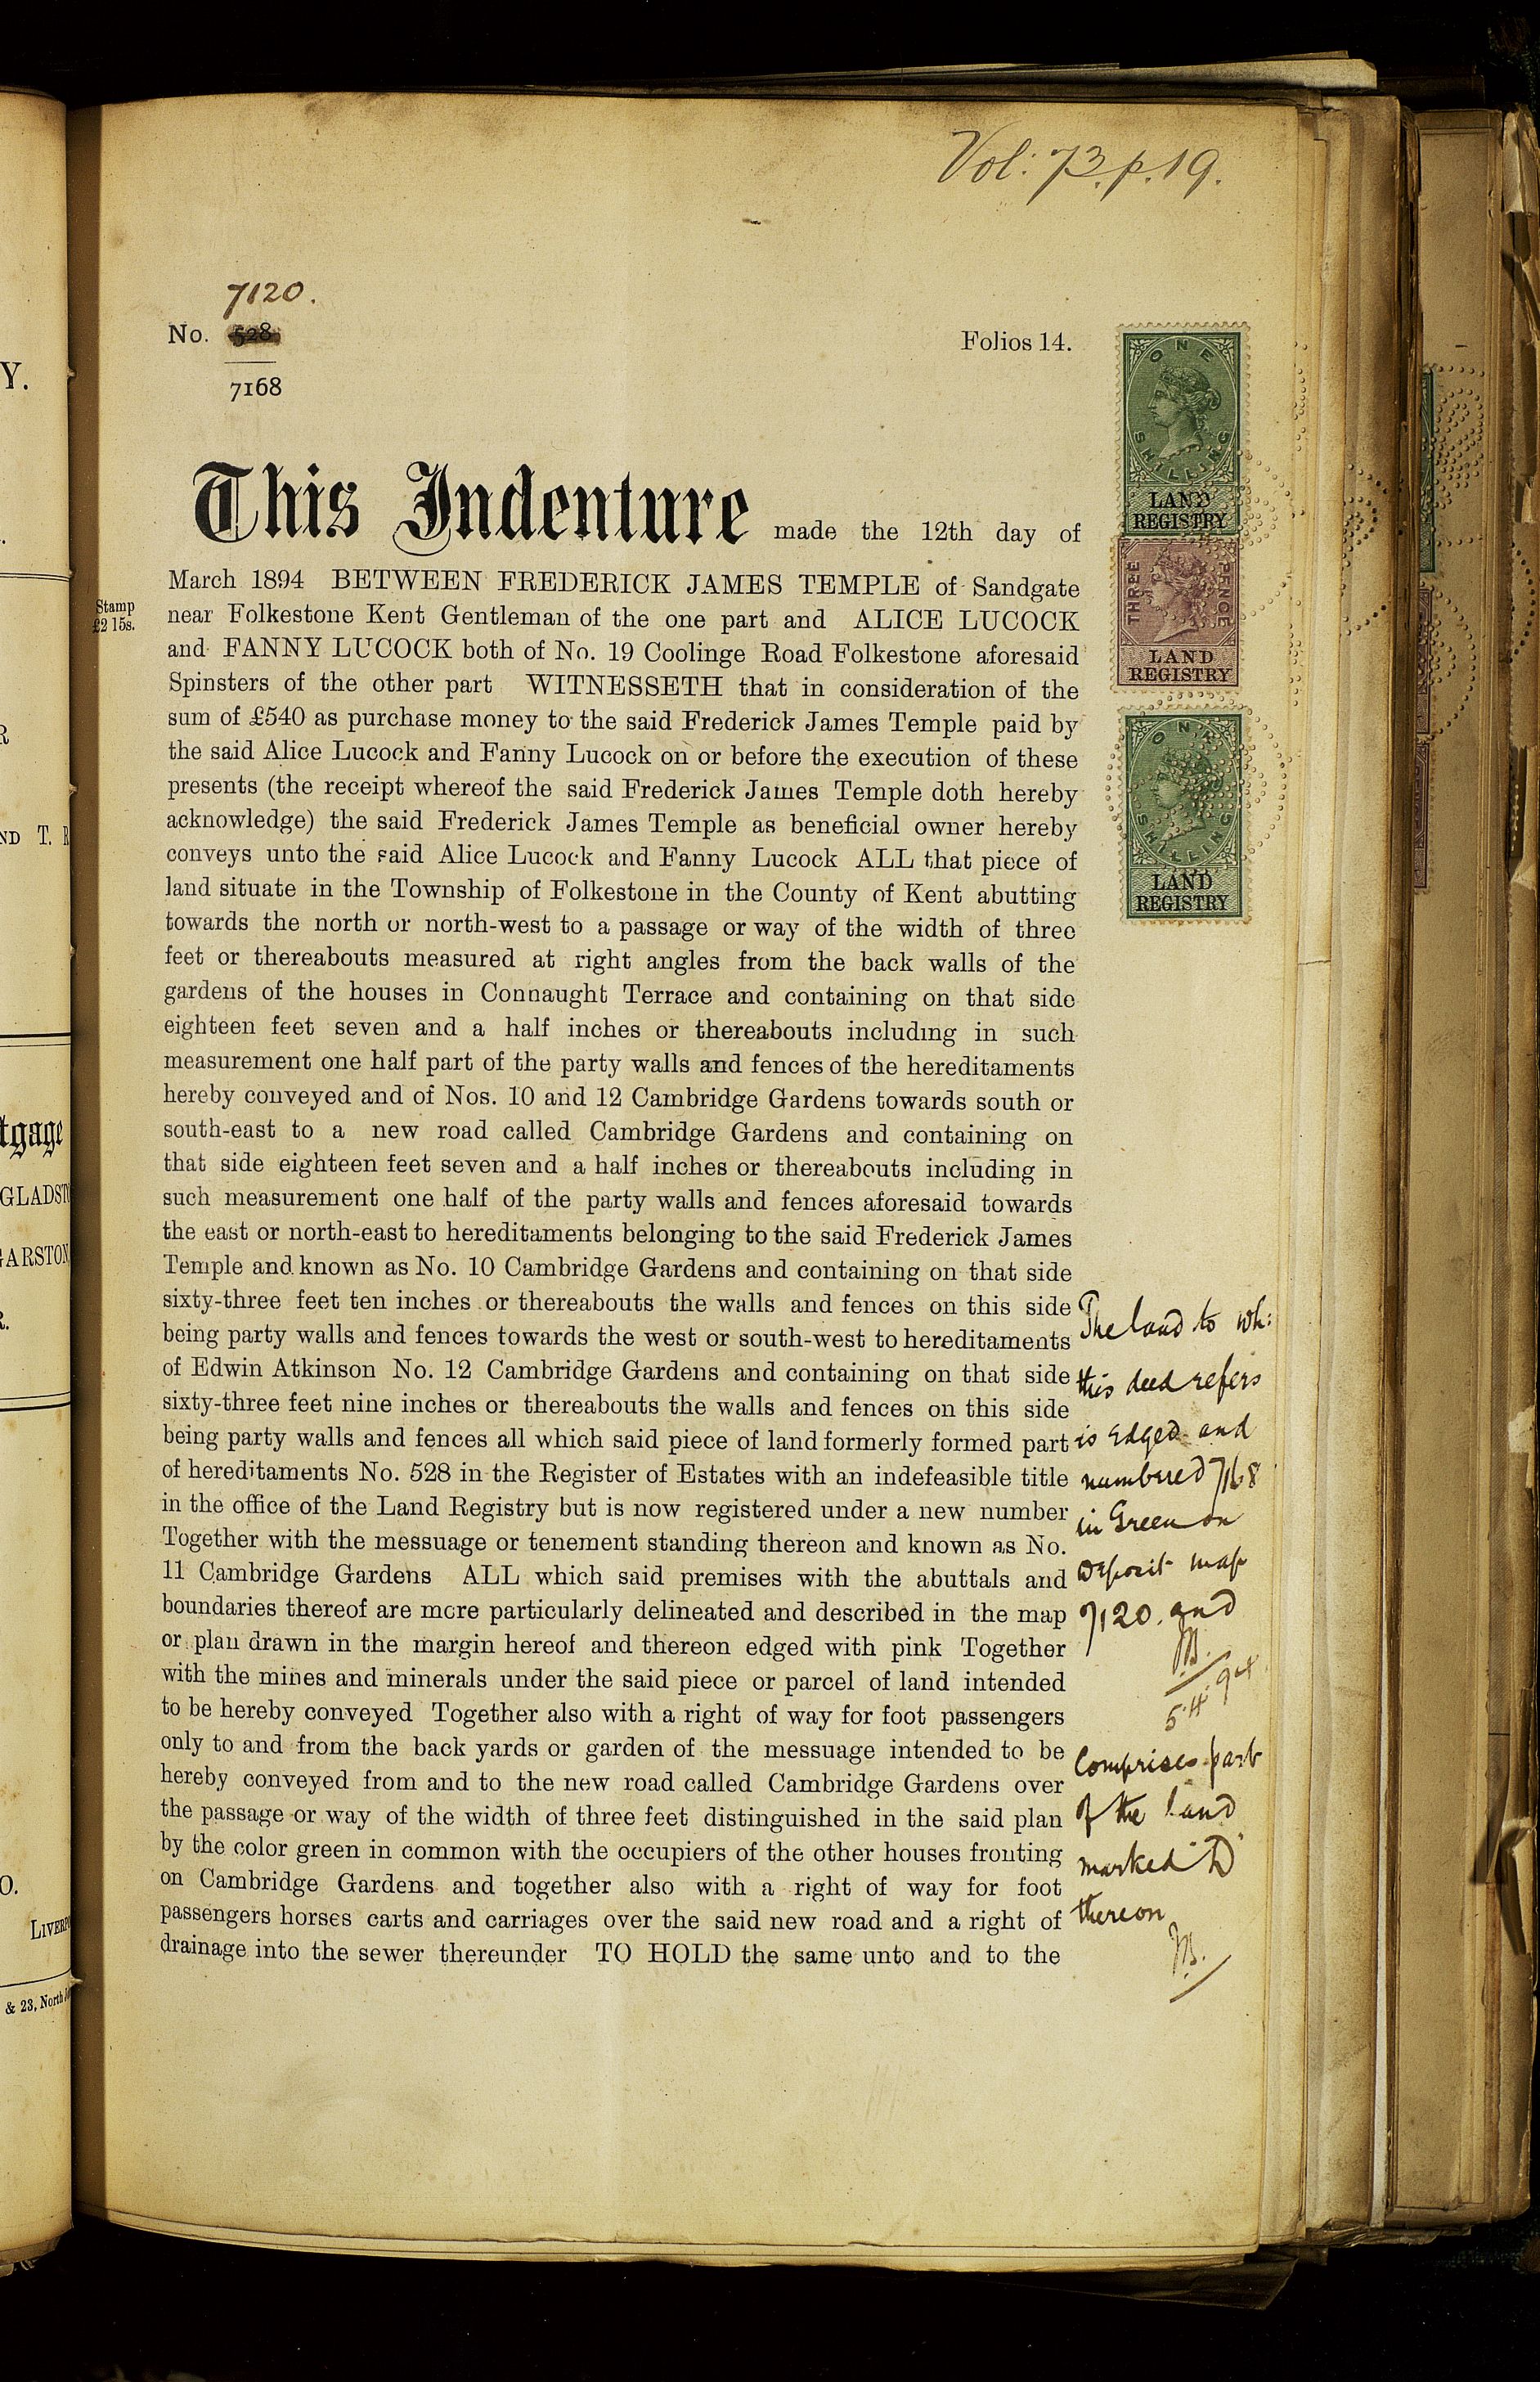 Vol: 73. p. 19.
7120.
No. 528
7168
Folios 14.
ONE
SHILLING
LAND
REGISTRY
THREE
PENCE
LAND
REGISTRY
ONE
SHILLING
LAND
REGISTRY
This Indenture made the 12th day of
March 1894 BETWEEN FREDERICK JAMES TEMPLE of Sandgate
Stamp
£2 15s.
near Folkestone Kent Gentleman of the one part and ALICE LUCOCK
and FANNY LUCOCK both of No. 19 Coolinge Road Folkestone aforesaid
Spinsters of the other part WITNESSETH that in consideration of the
sum of £540 as purchase money to the said Frederick James Temple paid by
the said Alice Lucock and Fanny Lucock on or before the execution of these
presents (the receipt whereof the said Frederick James Temple doth hereby
acknowledge) the said Frederick James Temple as beneficial owner hereby
conveys unto the said Alice Lucock and Fanny Lucock ALL that piece of
land situate in the Township of Folkestone in the County of Kent abutting
towards the north or north-west to a passage or way of the width of three
feet or thereabouts measured at right angles from the back walls of the
gardens of the houses in Connaught Terrace and containing on that side
eighteen feet seven and a half inches or thereabouts including in such
measurement one half part of the party walls and fences of the hereditaments
hereby conveyed and of Nos. 10 and 12 Cambridge Gardens towards south or
south-east to a new road called Cambridge Gardens and containing on
that side eighteen feet seven and a half inches or thereabouts including in
such measurement one half of the party walls and fences aforesaid towards
the east or north-east to hereditaments belonging to the said Frederick James
Temple and known as No. 10 Cambridge Gardens and containing on that side
sixty-three feet ten inches or thereabouts the walls and fences on this side
being party walls and fences towards the west or south-west to hereditaments
of Edwin Atkinson No. 12 Cambridge Gardens and containing on that side
sixty-three feet nine inches or thereabouts the walls and fences on this side
being party walls and fences all which said piece of land formerly formed part
of hereditaments No. 528 in the Register of Estates with an indefeasible title
in the office of the Land Registry but is now registered under a new number
Together with the messuage or tenement standing thereon and known as No.
11 Cambridge Gardens ALL which said premises with the abuttals and
boundaries thereof are more particularly delineated and described in the map
or plan drawn in the margin hereof and thereon edged with pink Together
with the mines and minerals under the said piece or parcel of land intended
to be hereby conveyed Together also with a right of way for foot passengers
only to and from the back yards or garden of the messuage intended to be
hereby conveyed from and to the new road called Cambridge Gardens over
the passage or way of the width of three feet distinguished in the said plan
by the color green in common with the occupiers of the other houses fronting
on Cambridge Gardens and together also with a right of way for foot
passengers horses carts and carriages over the said new road and a right of
drainage into the sewer thereunder TO HOLD the same unto and to the
The land to wh:
this deed refers
is edged and
numbered 7168
in Green on
Deposit map
7120. and
5.4.94
Comprises part
of the land
marked "D"
thereon
Y.
ND T. R
tgage
GLADST
GARSTON
O.
LIVERPO
& 23, North